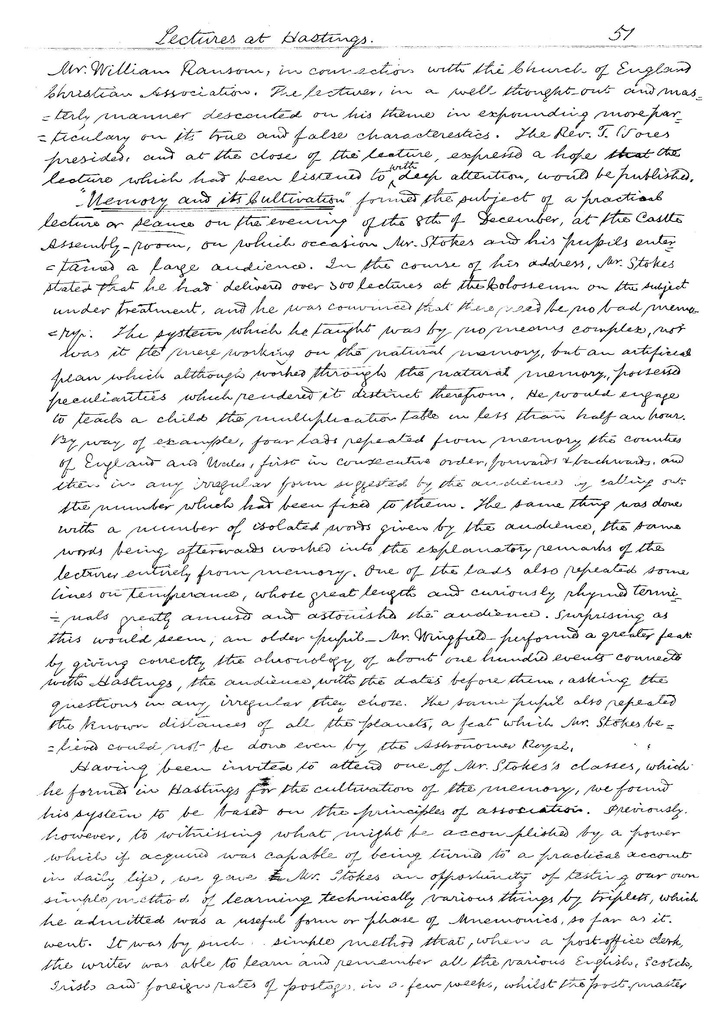 Lectures at Hastings. 51
Mr. William Ransom, in connection with the Church of England
Christian Association. The lecturer, in a well thought out and mas-
=terly manner descanted on his theme in expounding more par-
=ticulary on its true and false characterestics. The Rev. T. Vores
presided, and at the close of the lecture, expressed a hope that the
lecture which had been listened to with deep attention, would be published.
"Memory and its Cultivation" formed the subject of a practical
lecture or seance on the evening of the 8th of December, at the Castle
Assembly-room, on which occasion Mr. Stokes and his pupils enter-
=tained a large audience. In the course of his address, Mr. Stokes
stated that he had delivered over 300 lectures at the Colosseum on the subject
under treatment, and he was convinced that there need be no bad memo-
=ry. The system which he taught was by no means complex, nor
was it the mere working on the natural memory, but an artificial
plan which although worked through the natural memory, possessed
peculiarities which rendered it distinct therefrom. He would engage
to teach a child the multiplication table in less than half an hour.
By way of example, four lads repeated from memory the counties
of England and Wales, first in consecutive order, forwards & backwards, and
then in any irregular form suggested by the audience by calling out
the number which had been fixed to them. The same thing was done
with a number of isolated words given by the audience, the same
words being afterwards worked into the explanatory remarks of the
lecturer entirely from memory. One of the lads also repeated some
lines on temperance, whose great length and curiously rhymed termi-
=nals greatly amused and astonished the audience. Surprising as
this would seem, an older pupil – Mr. Wingfield – performed a greater feat
by giving correctly the chronology of about one hundred events connected
with Hastings, the audience, with the dates before them, asking the
questions in any irregular they chose. The same pupil also repeated
the known distances of all the planets, a feat which Mr. Stokes be-
=lieved could not be done even by the Astronomer Royal.
Having been invited to attend one of Mr. Stokes's classes, which
he formed in Hastings for the cultivation of the memory, we found
his system to be based on the principles of association. Previously,
however, to witnissing what might be accomplished by a power
which if acquired was capable of being turned to a practical account
in daily life, we gave Mr. Stokes an opportunity of testing our own
simple method of learning technically various things by triplets, which
he admitted was a useful form or phase of Mnemonics, so far as it
went. It was by such simple method that, when a post-office clerk,
the writer was able to learn and remember all the various English, Scotch,
Irish and foreign rates of postage in a few weeks, whilst the post-master